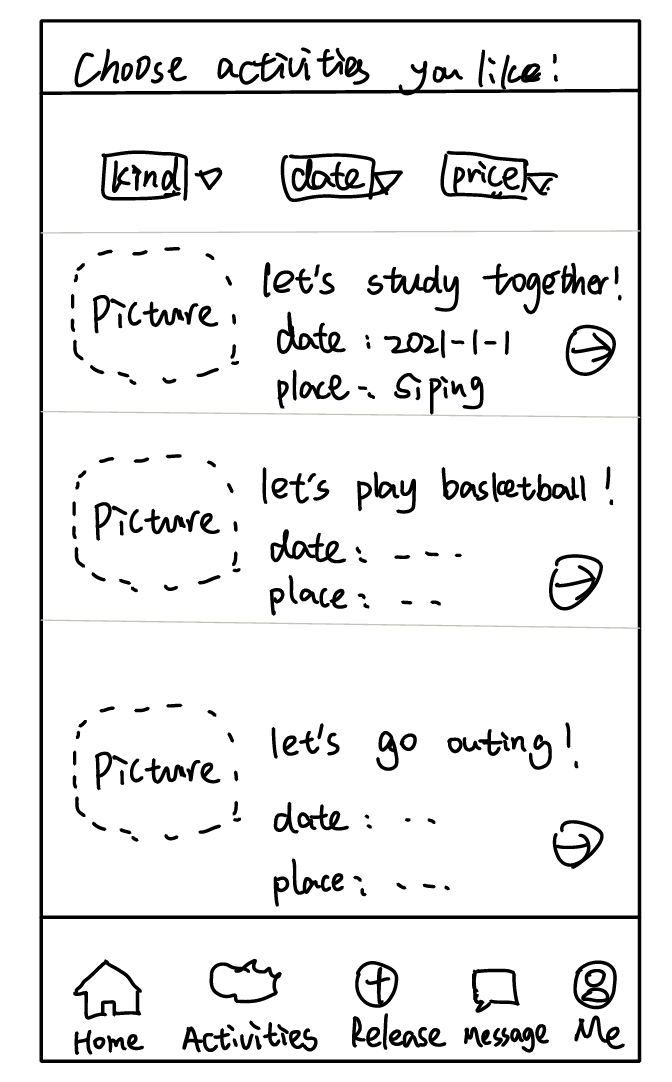 Choose activities you like!
kind date price
Picture
let's study together!
date : 2021-1-1
place : Siping
Picture
let's play basketball !
date : - - -
place : - -
Picture
let's go outing !
date : - -
place : - - -
Home Activities Release Message Me